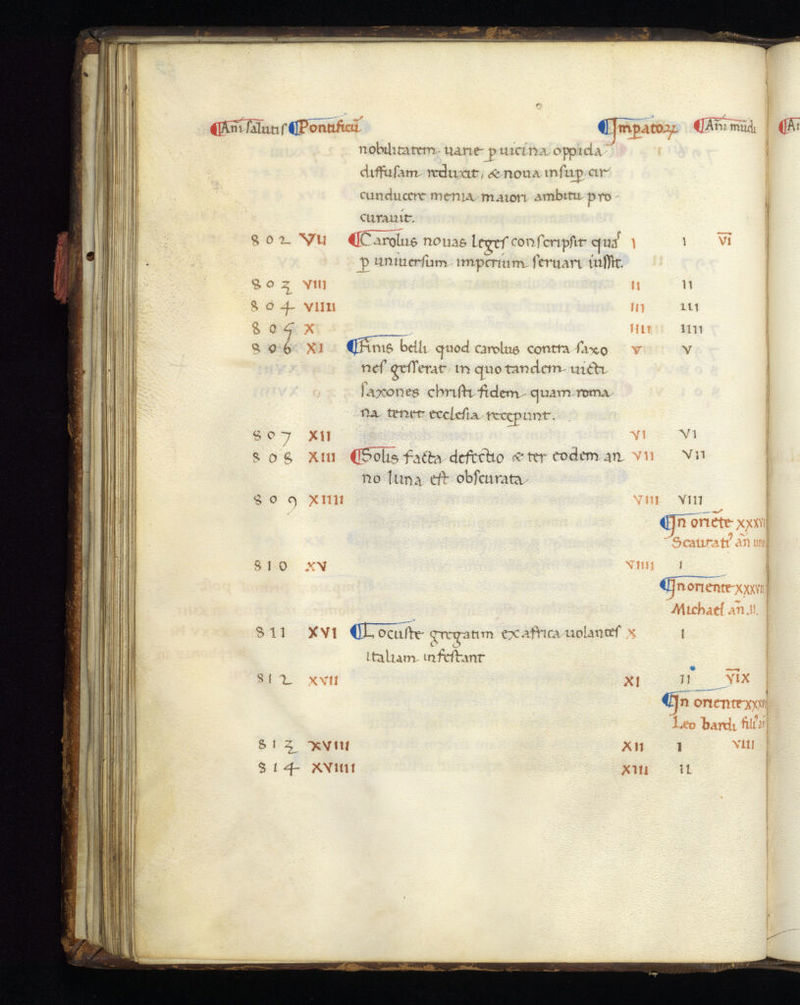 Ani salutis Pontificū Impatoꝝ Ani mūdi
nobilitatem uarie p uicina oppida
diffusam reduxit, & noua insup cir
cunducere menia maiori ambitu pro
curauit.
802 VII Carolus nouas leges conscripsit quas I I VI
p uniuersum imperium seruari iussit.
803 VIII II II
804 VIIII III III
805 X IIII IIII
806 XI Finis belli quod carolus contra saxo V V
nes gesserat in quo tandem uicti
saxones christi fidem quam roma
na tenet ecclesia receperunt.
807 XII VI VI
808 XIII Solis facta defectio & ter eodem an VII VII
no luna est obscurata
809 XIIII VIII VIII
In oriēte XXXVI
Scauratꝰ an̄
810 XV VIIII I
In oriente XXXVII
Michael an̄ II.
811 XVI Locuste gregatim ex africa uolantes X I
Italiam infestant
812 XVII XI II VIX
In oriente XXXVI
Leo bardi fili
813 XVIII XII I VIII
814 XVIIII XIII II